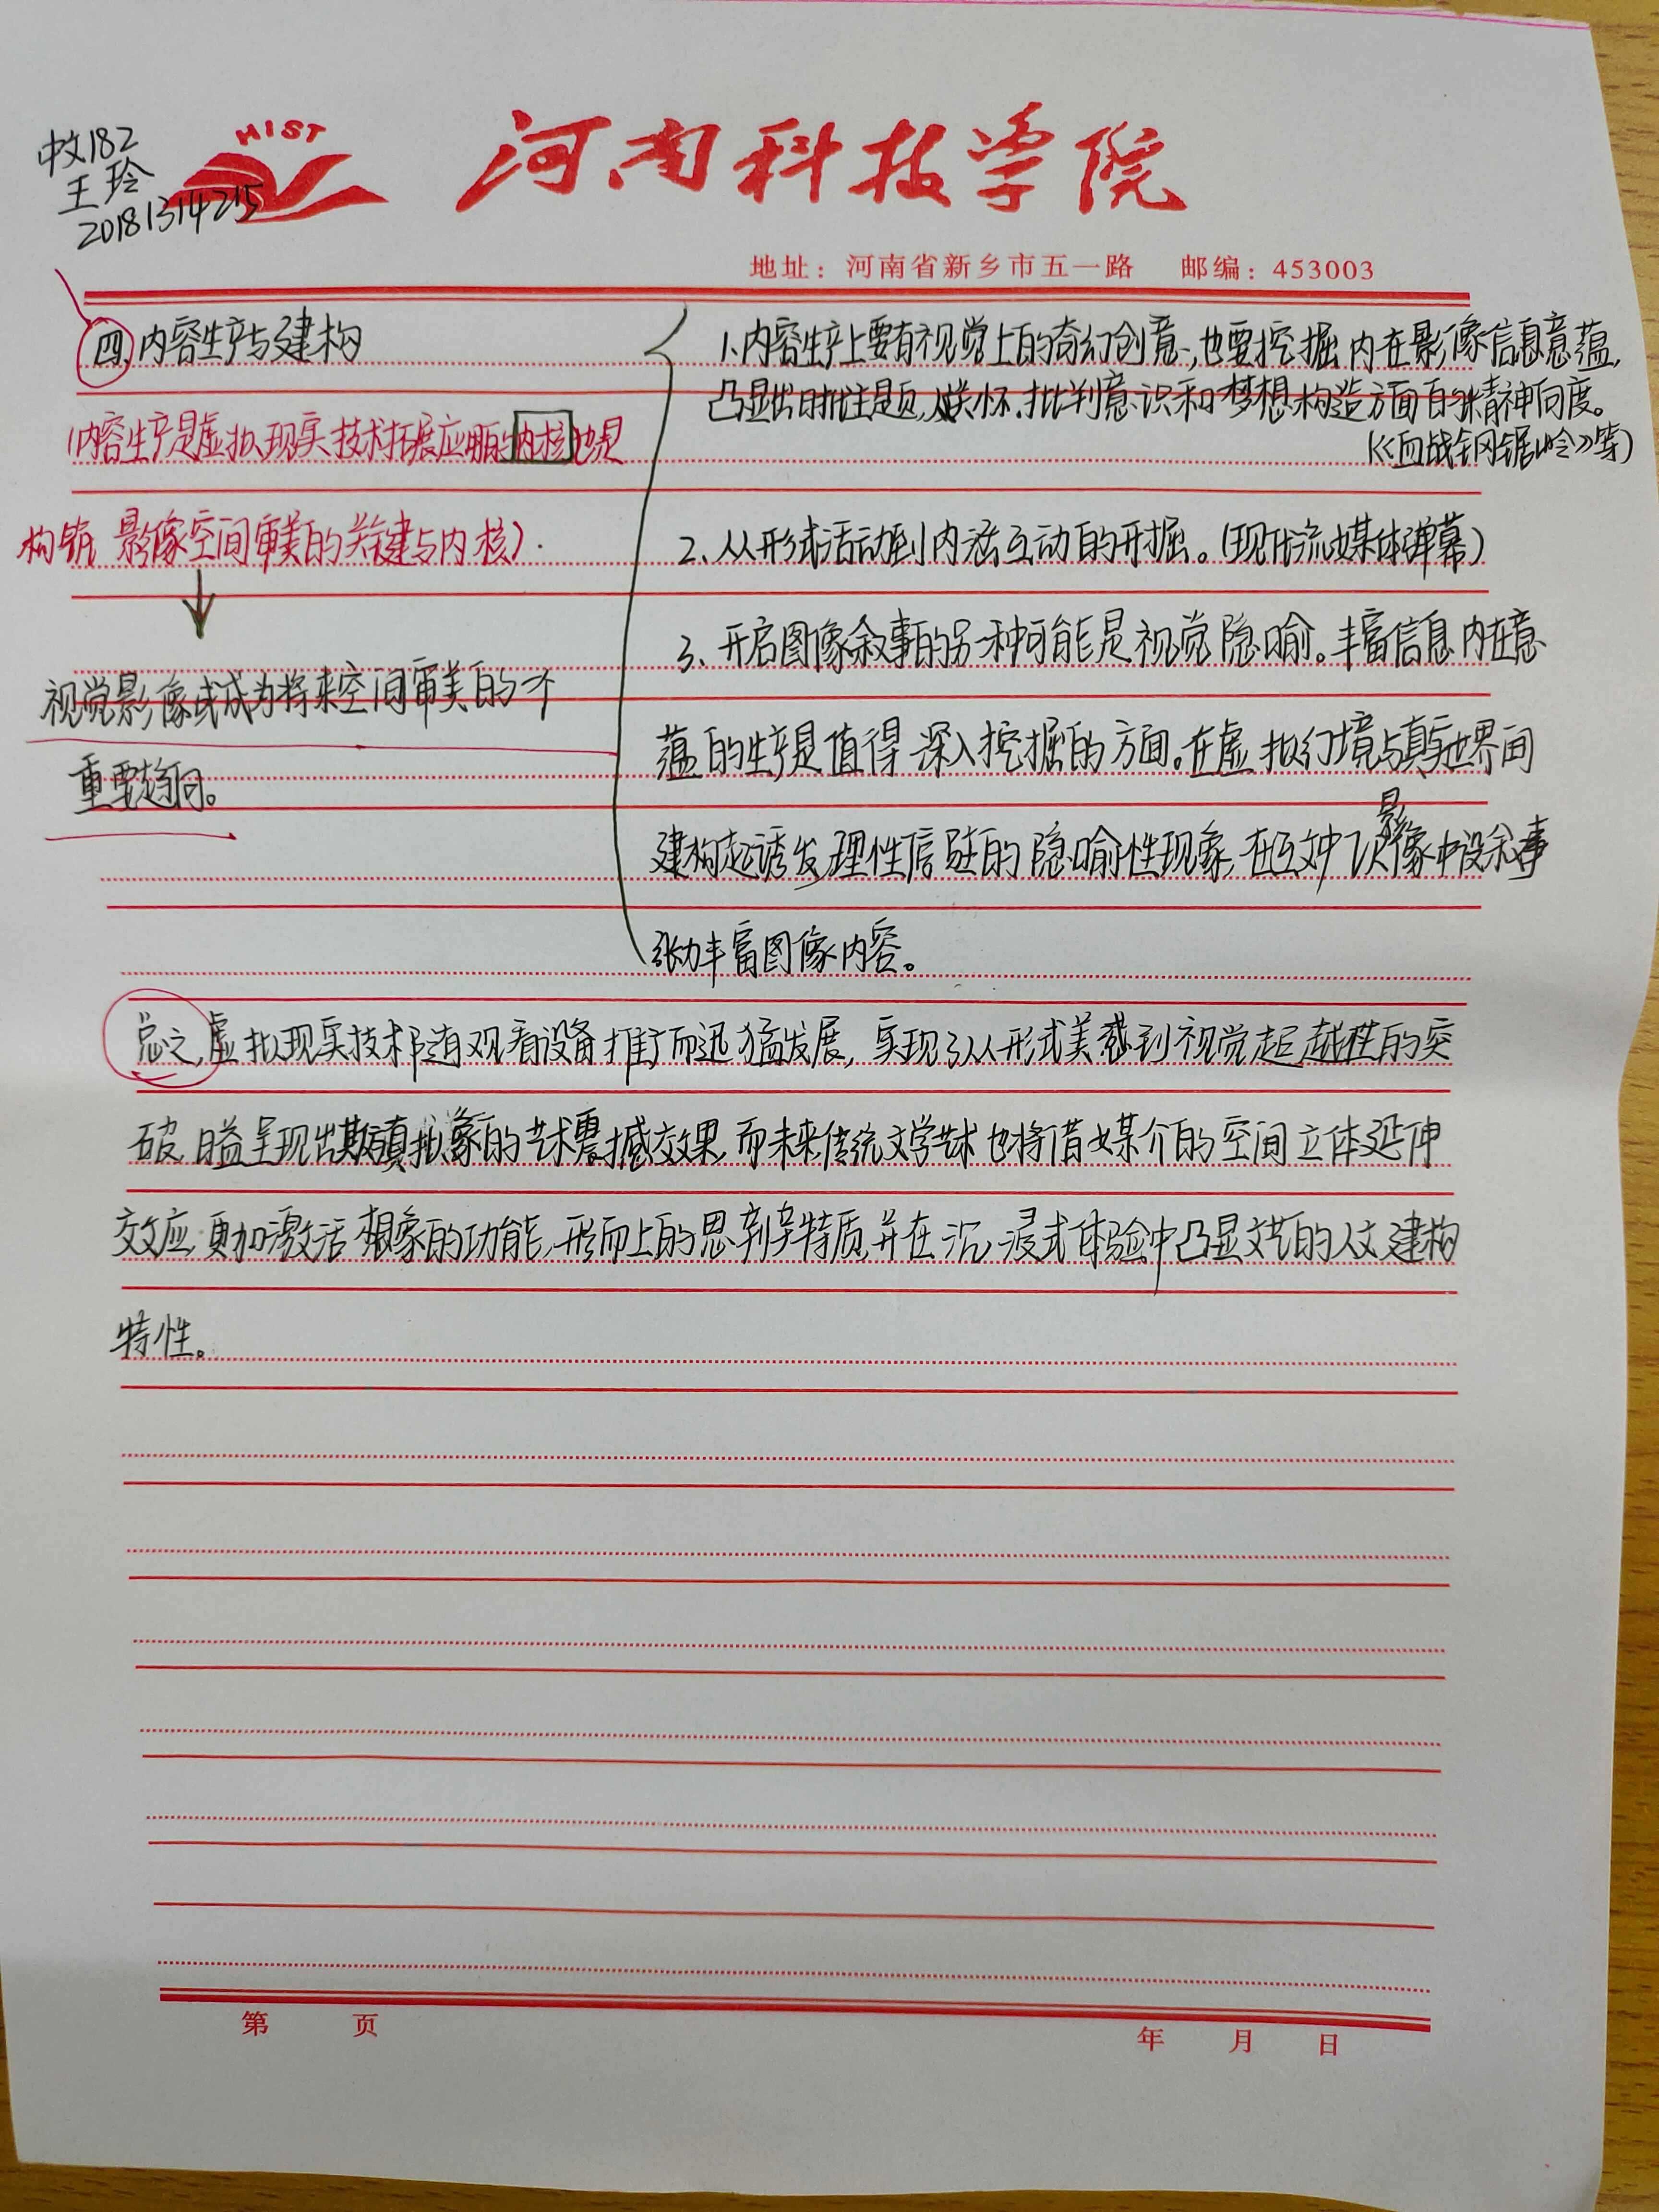 中文182
王玲
20181314215
HIST
河南科技学院
地址：河南省新乡市五一路 邮编：453003
四、内容生产与建构
（内容生产是虚拟现实技术拓展应用的内核也是
构筑影像空间审美的关键与内核）.
视觉影像或成为将来空间审美的一个
重要趋向。
1、内容生产上要有视觉上的奇幻创意，也要挖掘内在影像信息意蕴，
凸显出时批注是页，人类关怀、批判意识和梦想构造方面的精神向度。
（《血战钢锯岭》等）
2、从形式活动到内涵互动的开掘。（现代流媒体弹幕）
3、开启图像叙事的另一种可能是视觉隐喻。丰富信息内在意
蕴的生产是值得深入挖掘的方面。在虚拟幻境与真实世界间
建构起诱发理性信疑的隐喻性现象，在互文中影像中设叙事
张力丰富图像内容。
总之，虚拟现实技术随着观看设备推广而迅猛发展，实现了从形式美感到视觉超越性的突
破，日益呈现出期颐真拟象的艺术震撼效果，而未来传统文学艺术也将借媒介的空间立体延伸
效应，更加激活想象的功能，形而上的思辨特质，并在沉浸式体验中凸显文艺的人文建构
特性。
第 页
年 月 日